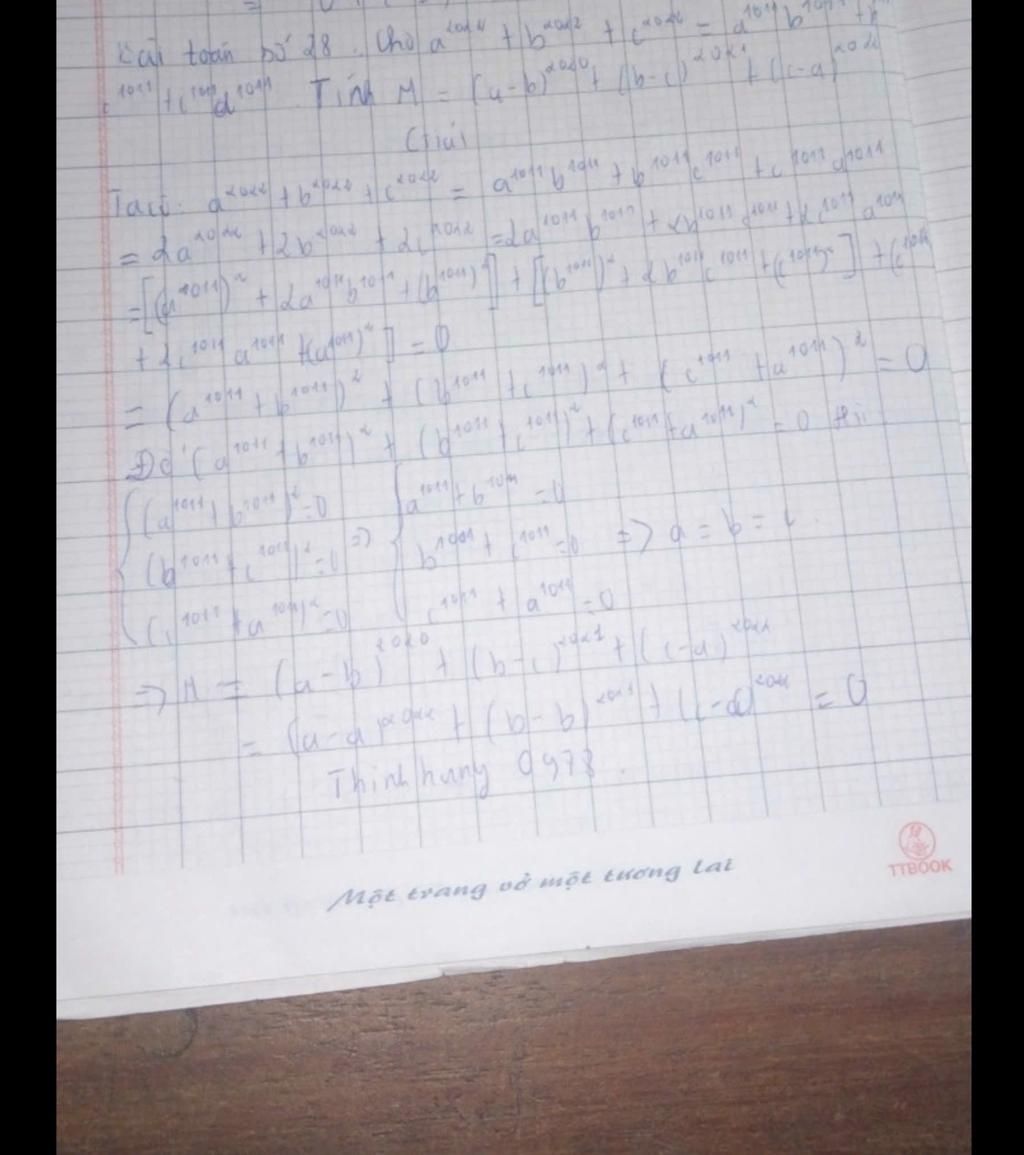 Bài toán số 28. Cho a²⁰²² + b²⁰²² + c²⁰²² = a¹⁰¹¹ b¹⁰¹¹ + b¹⁰¹¹
c¹⁰¹¹ + c¹⁰¹¹ a¹⁰¹¹ Tính M = (a-b)²⁰²⁰ + (b-c)²⁰²¹ + (c-a)²⁰²²
Giải
Ta có: a²⁰²² + b²⁰²² + c²⁰²² = a¹⁰¹¹ b¹⁰¹¹ + b¹⁰¹¹ c¹⁰¹¹ + c¹⁰¹¹ a¹⁰¹¹
= 2a²⁰²² + 2b²⁰²² + 2c²⁰²² = 2a¹⁰¹¹ b¹⁰¹¹ + 2b¹⁰¹¹ c¹⁰¹¹ + 2c¹⁰¹¹ a¹⁰¹¹
= [(a¹⁰¹¹)² + 2a¹⁰¹¹ b¹⁰¹¹ + (b¹⁰¹¹)²] + [(b¹⁰¹¹)² + 2b¹⁰¹¹ c¹⁰¹¹ + (c¹⁰¹¹)²] + (c¹⁰¹¹
+ 2c¹⁰¹¹ a¹⁰¹¹ + (a¹⁰¹¹)²] = 0
= (a¹⁰¹¹ + b¹⁰¹¹)² + (b¹⁰¹¹ + c¹⁰¹¹)² + (c¹⁰¹¹ + a¹⁰¹¹)² = 0
Để (a¹⁰¹¹ + b¹⁰¹¹)² + (b¹⁰¹¹ + c¹⁰¹¹)² + (c¹⁰¹¹ + a¹⁰¹¹)² = 0 thì
(a¹⁰¹¹ + b¹⁰¹¹)² = 0 a¹⁰¹¹ + b¹⁰¹¹ = 0
(b¹⁰¹¹ + c¹⁰¹¹)² = 0 => b¹⁰¹¹ + c¹⁰¹¹ = 0 => a = b = c.
(c¹⁰¹¹ + a¹⁰¹¹)² = 0 c¹⁰¹¹ + a¹⁰¹¹ = 0
=> M = (a-b)²⁰²⁰ + (b-c)²⁰²¹ + (c-a)²⁰²²
= (a-a)²⁰²² + (b-b)²⁰²¹ + (c-c)²⁰²² = 0
Thinh hưng 0978.
Một trang vở một tương lai
TTBOOK